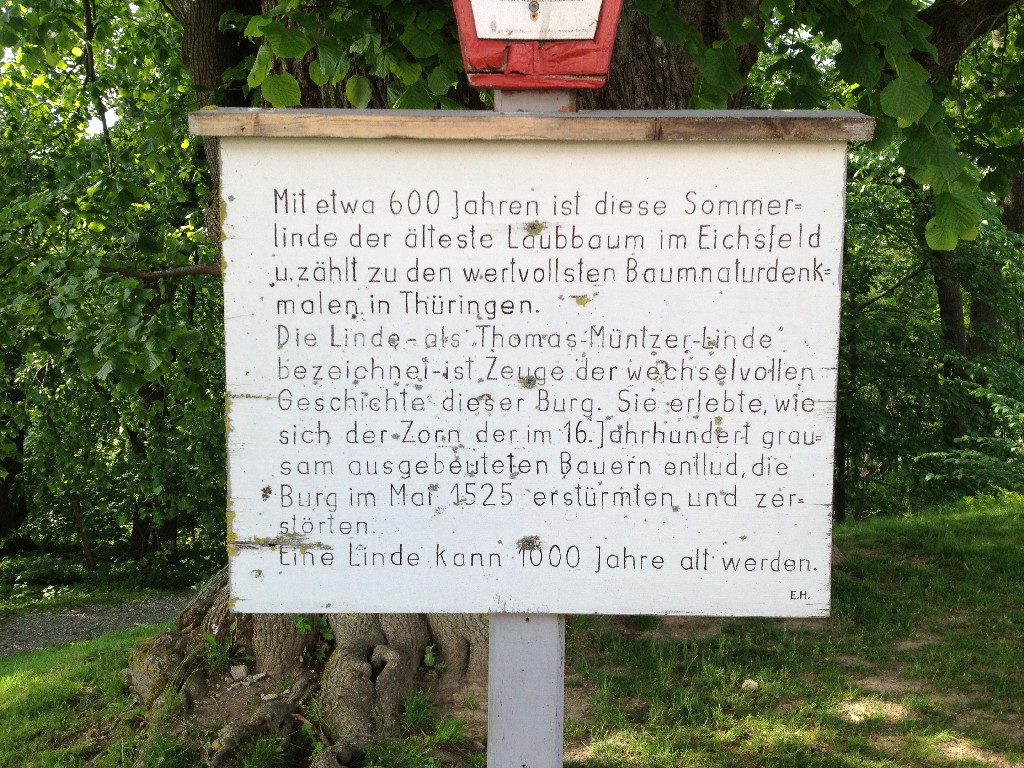 Mit etwa 600 Jahren ist diese Sommer=
linde der älteste Laubbaum im Eichsfeld
u. zählt zu den wertvollsten Baumnaturdenk=
malen in Thüringen.
Die Linde - als "Thomas-Müntzer-Linde"
bezeichnet - ist Zeuge der wechselvollen
Geschichte dieser Burg. Sie erlebte, wie
sich der Zorn der im 16. Jahrhundert grau=
sam ausgebeuteten Bauern entlud, die
Burg im Mai 1525 erstürmten und zer=
störten.
Eine Linde kann 1000 Jahre alt werden.
E.H.